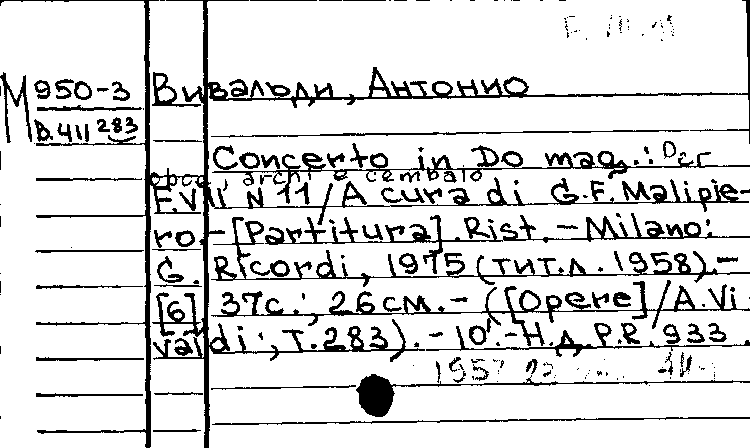 M 950-3 Вивальди, Антонио
В.411 283
Concerto in Do mag.: Per
oboe, archi e cembalo
F.VII N 11 / A cura di G.F. Malipie-
ro.-[Partitura]. Rist. - Milano:
G. Ricordi, 1975 (тит.л. 1958).-
[6] 37с.; 26см.- ([Opere] / A. Vi
valdi ; T.283). - 10'.-Н.Д. P.R. 933.
1957 22